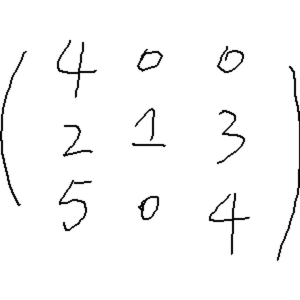 4 0 0
2 1 3
5 0 4